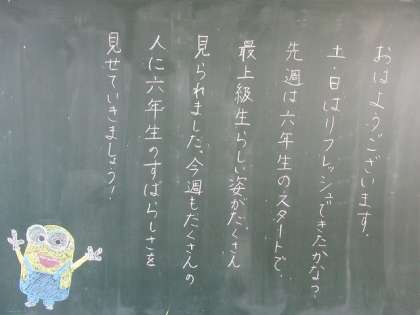 おはようございます。
土・日はリフレッシュできたかな?
先週は六年生のスタートで、
最上級生らしい姿がたくさん
見られました。今週もたくさんの
人に六年生のすばらしさを
見せていきましょう!